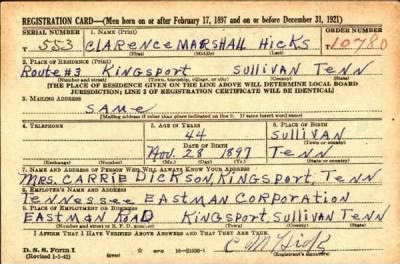 REGISTRATION CARD—(Men born on or after February 17, 1897 and on or before December 31, 1921)
SERIAL NUMBER 1. NAME (Print) ORDER NUMBER
T 553 CLARENCE MARSHALL HICKS T 10780
(First) (Middle) (Last)
2. PLACE OF RESIDENCE (Print)
Route #3 Kingsport Sullivan Tenn
(Number and street) (Town, township, village, or city) (County) (State)
[THE PLACE OF RESIDENCE GIVEN ON THE LINE ABOVE WILL DETERMINE LOCAL BOARD
JURISDICTION; LINE 2 OF REGISTRATION CERTIFICATE WILL BE IDENTICAL]
3. MAILING ADDRESS
SAME
[Mailing address if other than place indicated on line 2. If same insert word same]
4. TELEPHONE 5. AGE IN YEARS 6. PLACE OF BIRTH
44 Sullivan
DATE OF BIRTH (Town or county)
Nov. 28 1897 Tenn
(Exchange) (Number) (Mo.) (Day) (Yr.) (State or country)
7. NAME AND ADDRESS OF PERSON WHO WILL ALWAYS KNOW YOUR ADDRESS
MRS. CARRIE DICKSON, KINGSPORT, TENN
8. EMPLOYER'S NAME AND ADDRESS
Tennessee EASTMAN CORPORATION
EASTMAN ROAD Kingsport, SULLIVAN TENN
(Number and street or R. F. D. number) (Town) (County) (State)
I AFFIRM THAT I HAVE VERIFIED ABOVE ANSWERS AND THAT THEY ARE TRUE.
D. S. S. Form 1 C M Hicks
(Revised 1-1-42) (over) (Registrant's signature)